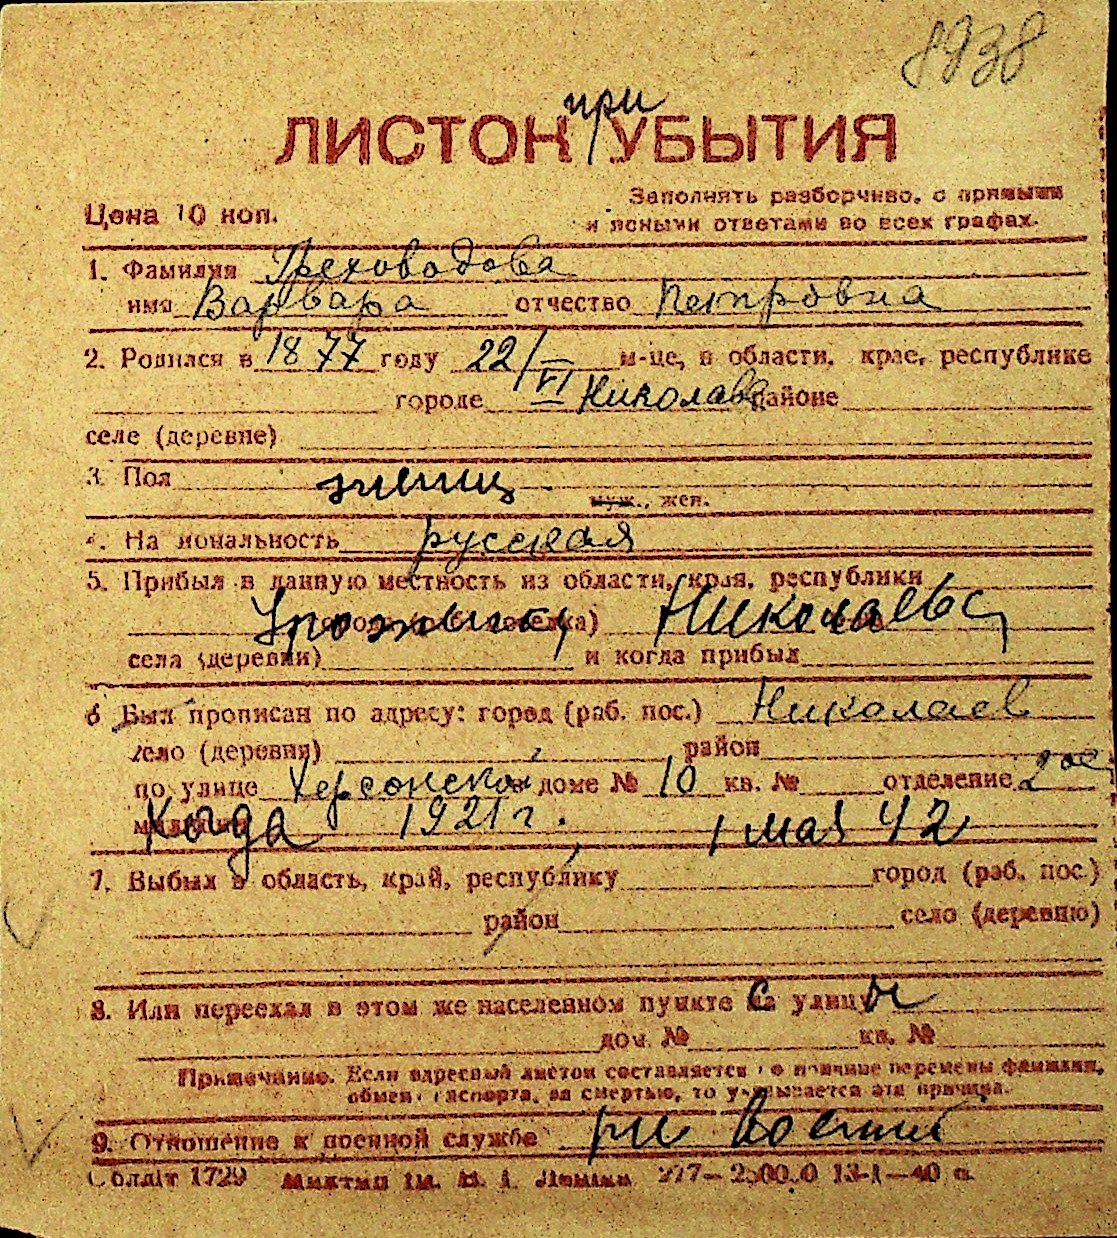 8938
при
ЛИСТОК УБЫТИЯ
Цена 10 коп.
Заполнять разборчиво, с прямыми
и ясными ответами во всех графах.
1. Фамилия Греховодова
имя Варвара отчество Петровна
2. Родился в 1877 году 22/VI м-це, в области, крае, республике
городе Николаев районе
селе (деревне)
3. Пол женщ.
муж., жен.
4. Национальность русская
5. Прибыл в данную местность из области, края, республики
Урожениц, Николаева
села (деревни) и когда прибыл
6 Был прописан по адресу: город (раб. пос.) Николаев
село (деревни) район
по улице Херсонской в доме № 10 кв. № отделение 2 ое
милиции Когда 1921 г. 1 мая 42
7. Выбыл в область, край, республику город (раб. пос.)
район село (деревню)
8. Или переехал в этом же населенном пункте с улицы
дом. № кв. №
Примечание. Если адресный листок составляется по причине перемены фамилии,
обмена паспорта, за смертью, то указывается эта причина.
9. Отношение к военной службе
Солдіт 1729 277— 13-І—40 р.